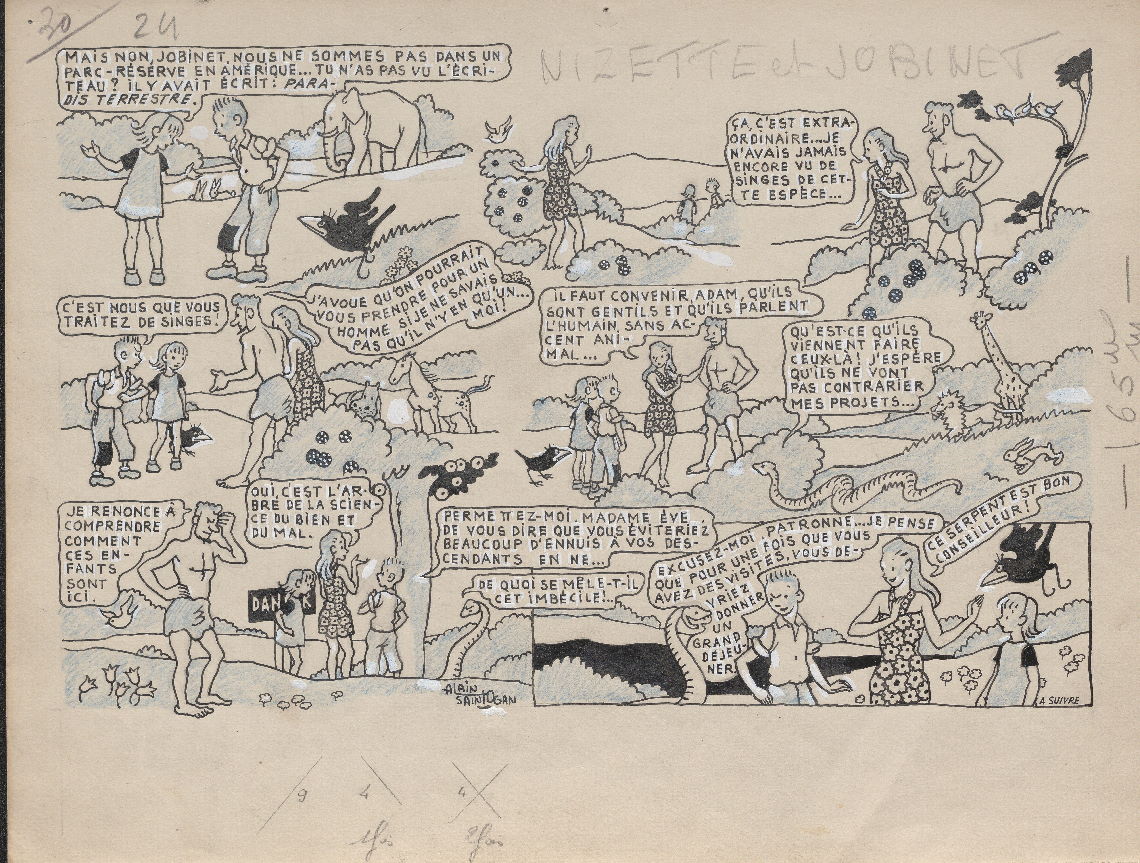 30 24
NIZETTE et JOBINET
MAIS NON, JOBINET, NOUS NE SOMMES PAS DANS UN
PARC-RÉSERVE EN AMÉRIQUE... TU N'AS PAS VU L'ÉCRI-
TEAU? IL Y AVAIT ÉCRIT: PARA-
DIS TERRESTRE.
ÇA, C'EST EXTRA-
ORDINAIRE... JE
N'AVAIS JAMAIS
ENCORE VU DE
SINGES DE CET-
TE ESPÈCE...
C'EST NOUS QUE VOUS
TRAITEZ DE SINGES!
J'AVOUE QU'ON POURRAIT
VOUS PRENDRE POUR UN
HOMME SI JE NE SAVAIS
PAS QU'IL N'Y EN QU'UN...
MOI!
IL FAUT CONVENIR, ADAM, QU'ILS
SONT GENTILS ET QU'ILS PARLENT
L'HUMAIN, SANS AC-
CENT ANI-
MAL...
QU'EST-CE QU'ILS
VIENNENT FAIRE
CEUX-LÀ! J'ESPÈRE
QU'ILS NE VONT
PAS CONTRARIER
MES PROJETS...
165
JE RENONCE À
COMPRENDRE
COMMENT
CES EN-
FANTS
SONT
ICI.
OUI, C'EST L'AR-
BRE DE LA SCIEN-
CE DU BIEN ET
DU MAL.
DAN
PERMETTEZ-MOI, MADAME ÈVE
DE VOUS DIRE QUE VOUS ÉVITERIEZ
BEAUCOUP D'ENNUIS À VOS DES-
CENDANTS EN NE...
DE QUOI SE MÊLE-T-IL
CET IMBÉCILE!..
ALAIN
SAINT-OGAN
EXCUSEZ-MOI PATRONNE... JE PENSE
QUE POUR UNE FOIS QUE VOUS
AVEZ DES VISITES, VOUS DE-
VRIEZ
DONNER
UN
GRAND
DÉJEU-
NER
CE SERPENT EST BON
CONSEILLEUR!
A SUIVRE
9 4 4